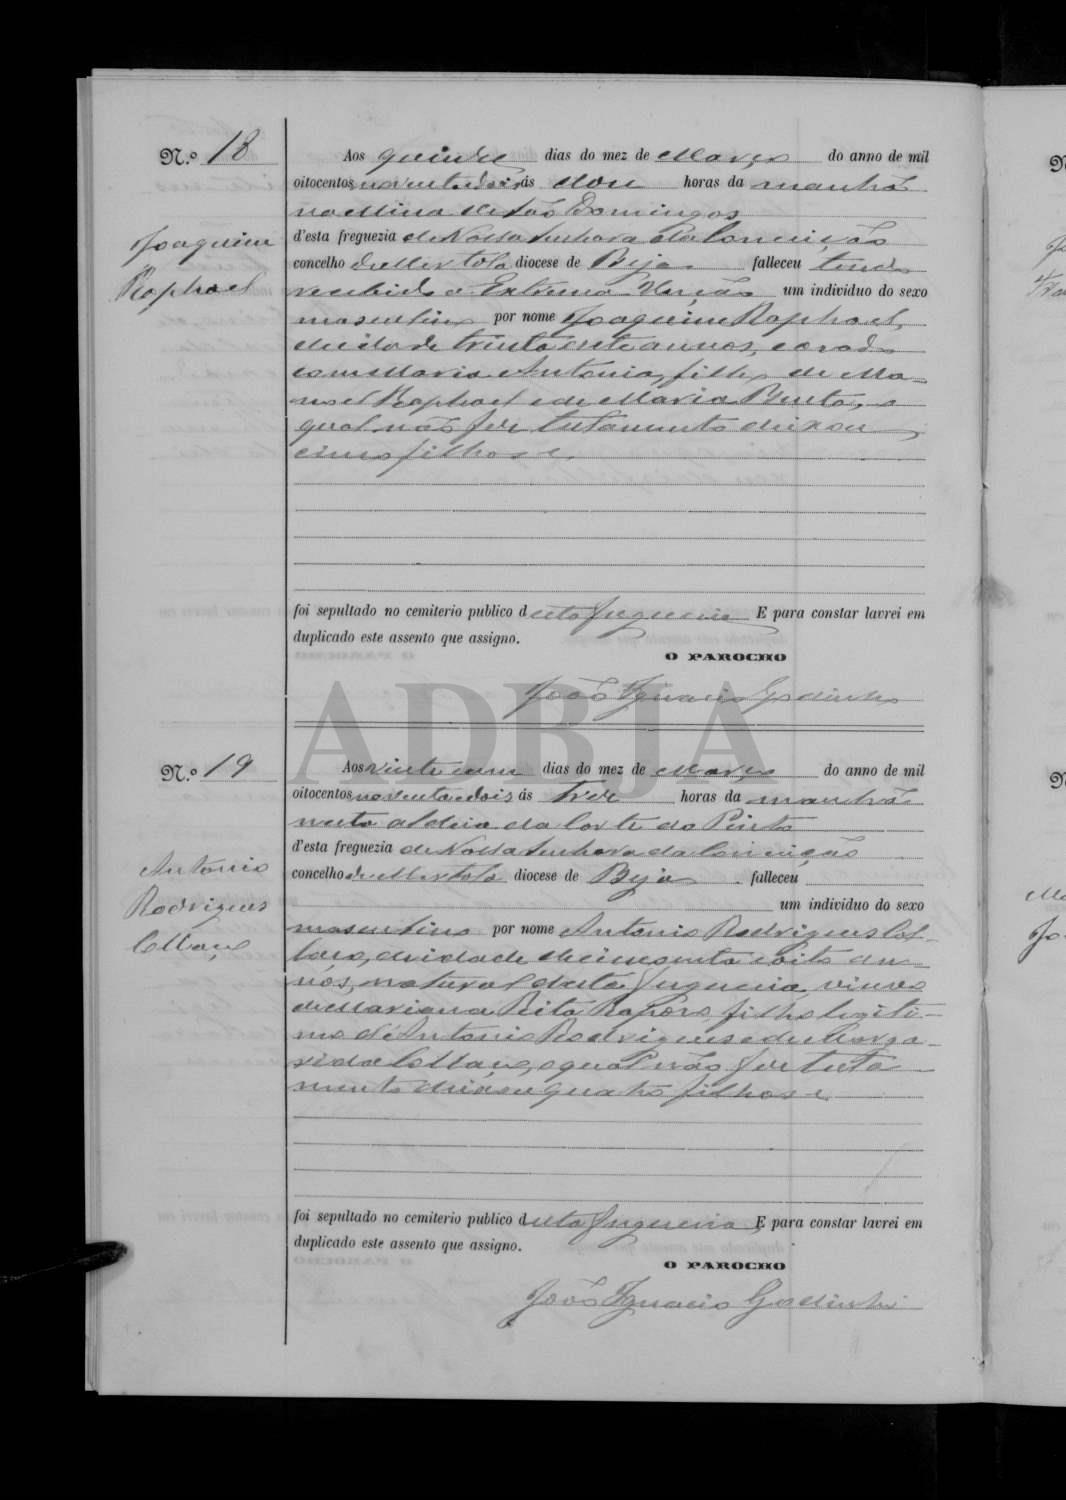 N.º 18
Joaquim
Raphael
Aos quinze dias do mez de Março do anno de mil
oitocentos noventa e dois ás onze horas da manhã
na Mina de São Domingos
d'esta freguezia de Nossa Senhora da Conceição
concelho de Mertola diocese de Beja falleceu tendo
recebido a Extrema Unção um individuo do sexo
masculino por nome Joaquim Raphael,
de idade de trinta e sete annos, casado
com Maria Antonia, filho de Ma-
noel Raphael e de Maria Benta, o
qual não fez testamento deixou
cinco filhos e
foi sepultado no cemiterio publico desta freguezia E para constar lavrei em
duplicado este assento que assigno.
O PAROCHO
João Ignacio Godinho
ADBJA
N.º 19
Antonio
Rodrigues
Collaço
Aos vinte e um dias do mez de Março do anno de mil
oitocentos noventa e dois ás trez horas da manhã
nesta aldeia da Corte do Pinto
d'esta freguezia de Nossa Senhora da Conceição
concelho de Mertola diocese de Beja falleceu
um individuo do sexo
masculino por nome Antonio Rodrigues Col-
laço, de idade de cincoenta e oito an-
nos, natural desta freguezia, viuvo
de Mariana Rita Raposo, filho legiti-
mo de Antonio Rodrigues e de Marga-
rida Collaço, o qual não fez testa-
mento deixou quatro filhos e
foi sepultado no cemiterio publico desta freguezia E para constar lavrei em
duplicado este assento que assigno.
O PAROCHO
João Ignacio Godinho